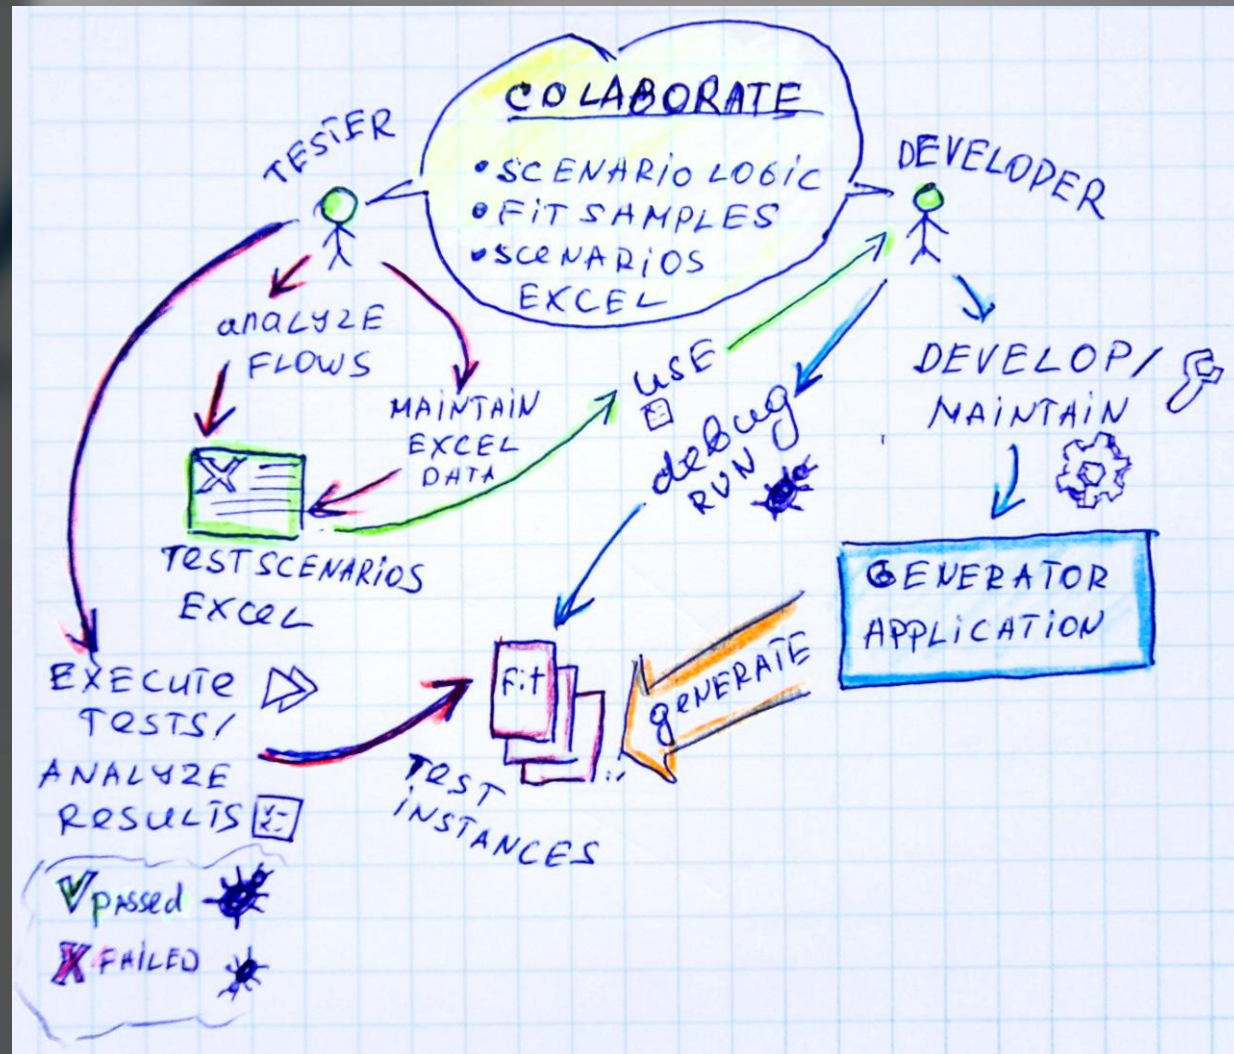 COLABORATE
• SCENARIO LOGIC
• FIT SAMPLES
• SCENARIOS
EXCEL
TESTER
DEVELOPER
ANALYZE
FLOWS
MAINTAIN
EXCEL
DATA
USE
debug
RUN
DEVELOP/
MAINTAIN
X
TEST SCENARIOS
EXCEL
GENERATOR
APPLICATION
GENERATE
Fit
TEST
INSTANCES
EXECUTE
TESTS/
ANALYZE
RESULTS
V passed
X FAILED